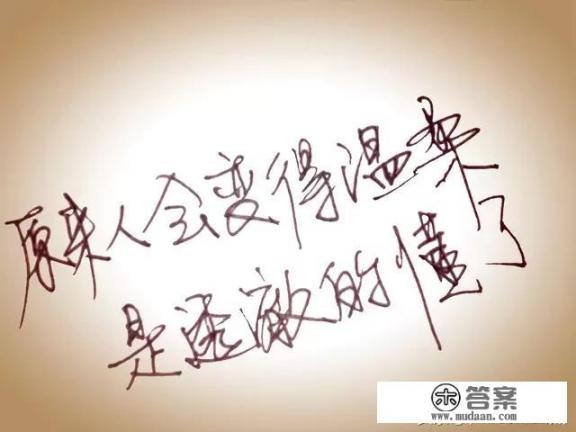 原来人会变得温柔
是透澈的懂了
答案
www.mudaan.com